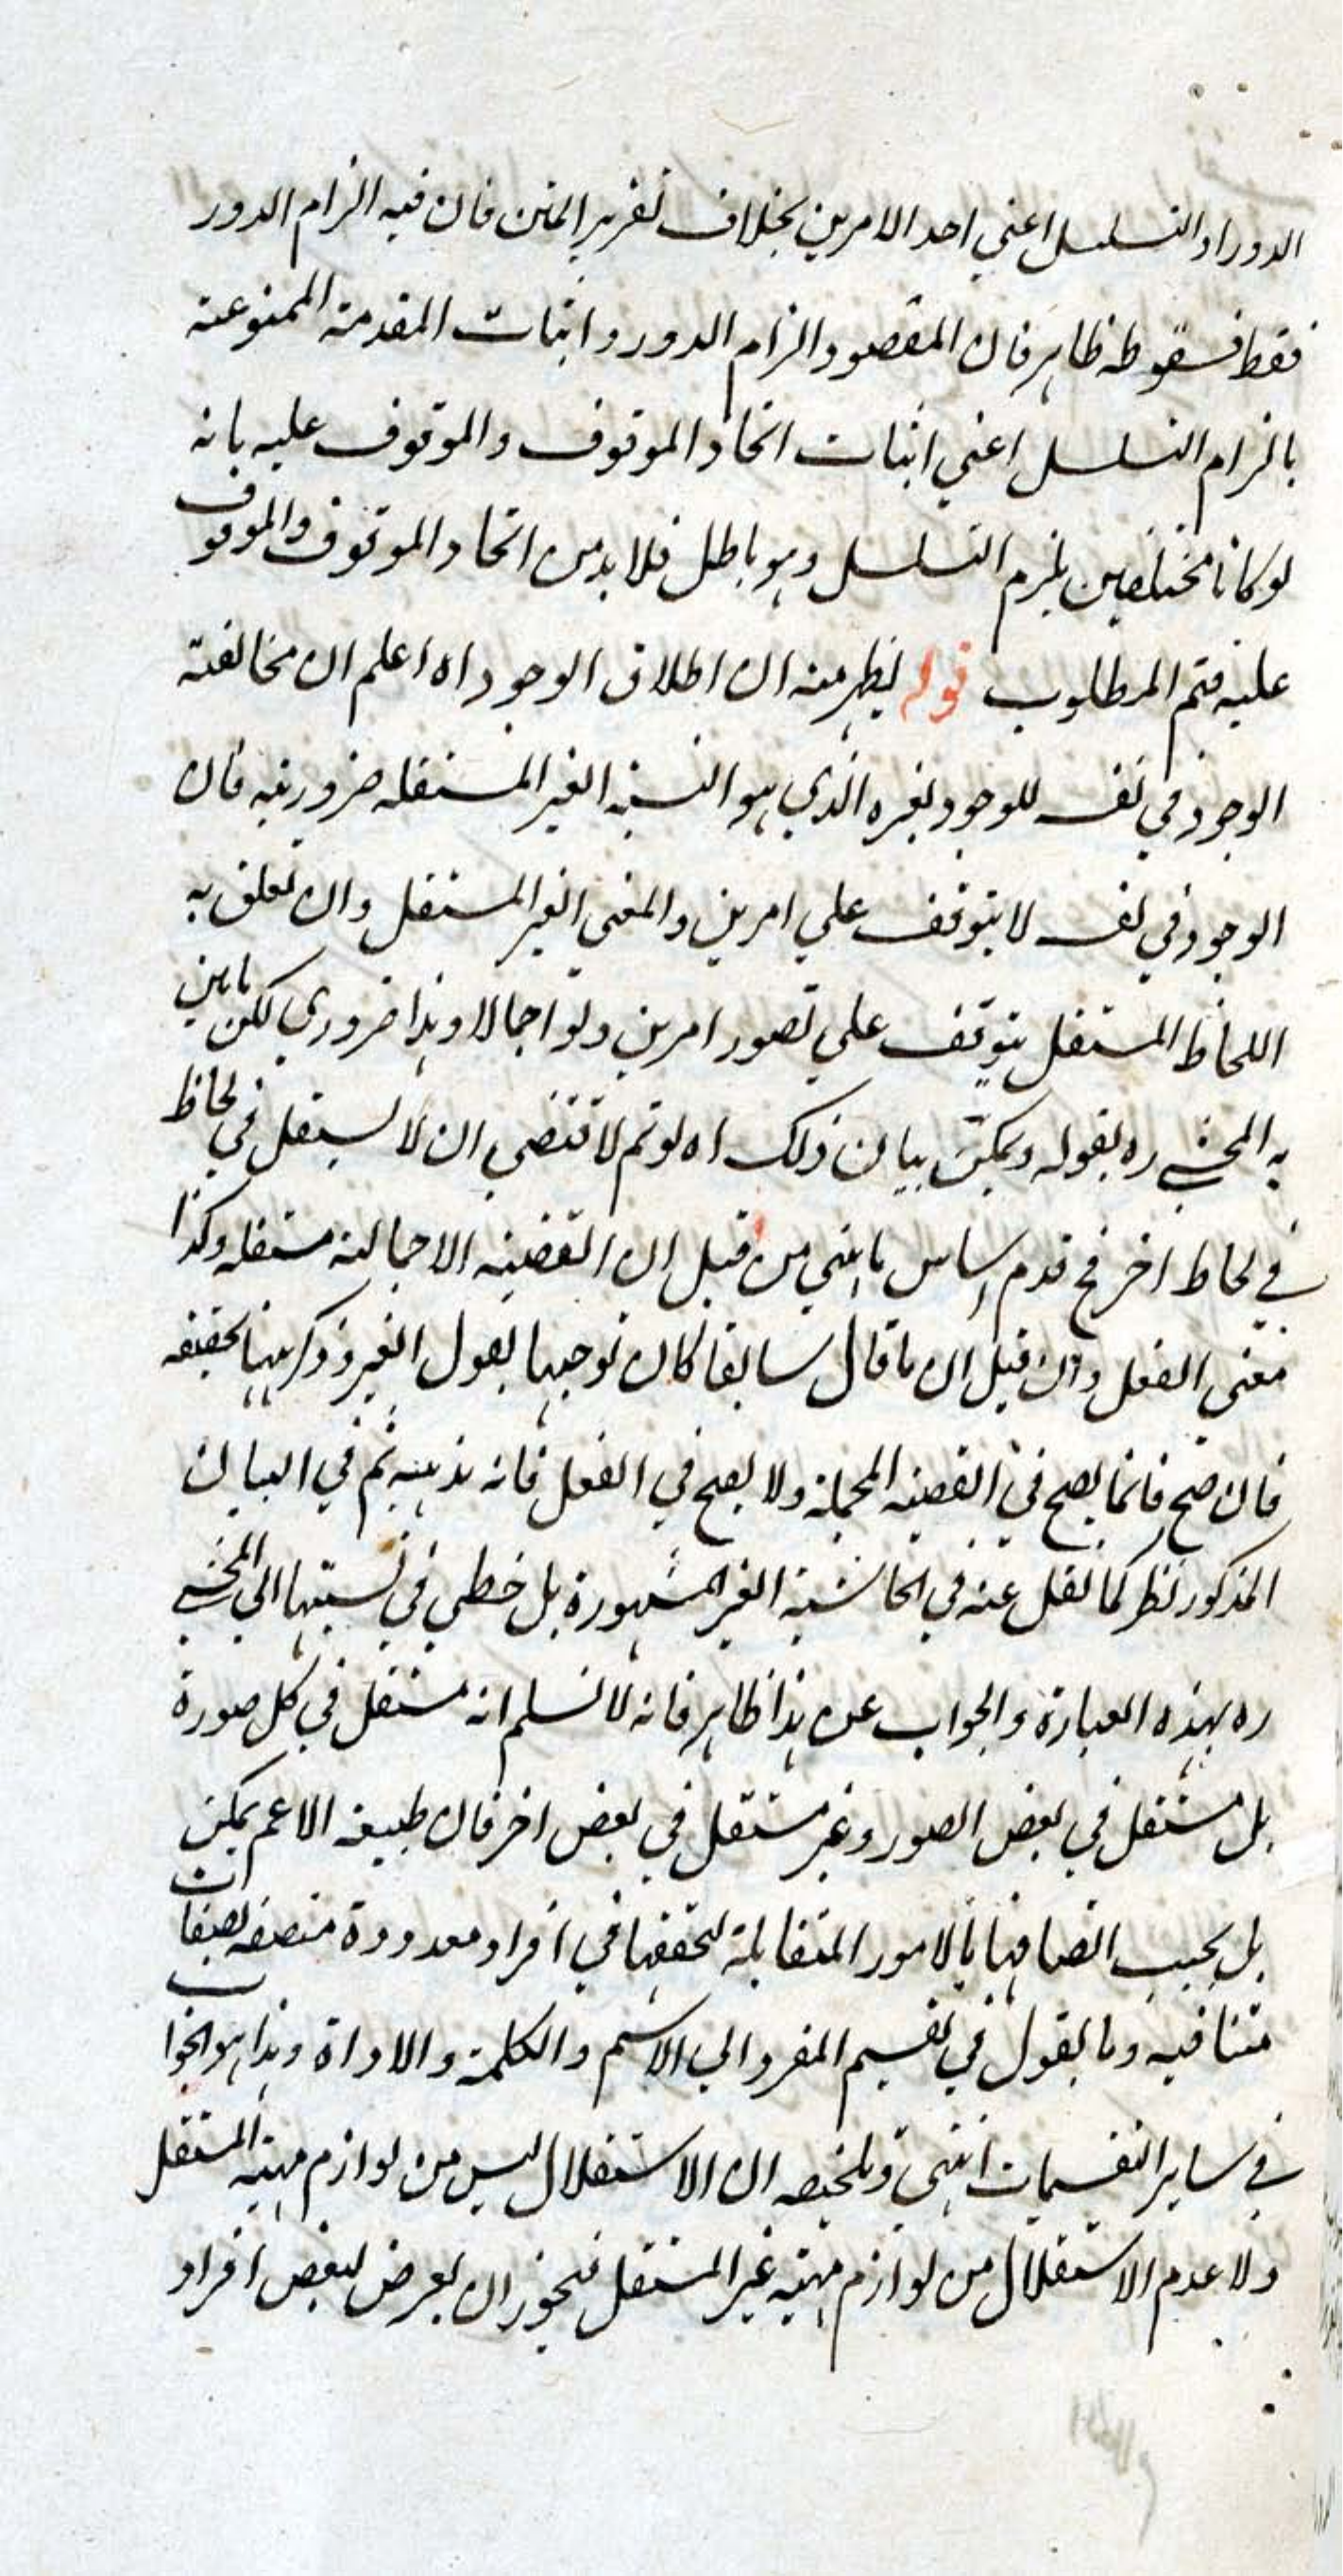 الدور او التسلسل اعني احد الامرين بخلاف تقرير المتن فان فيه الزام الدور
فقط فسقوطه ظاهر فان المقصود الزام الدور واثبات المقدمة الممنوعة
بالزام التسلسل اعني اثبات اتحاد الموقوف والموقوف عليه بانه
لو كانا مختلفين يلزم التسلسل وهو باطل فلا بد من اتحاد الموقوف والموقوف
عليه فتم المطلوب قوله ليظهر منه ان اطلاق الوجود اه اعلم ان مخالفة
الوجود في نفسه للوجود لغيره الذي هو النسبة الغير المستقلة ضرورية فان
الوجود في نفسه لا يتوقف علي امرين والمعني الغير المستقل وان تعلق به
اللحاظ المستقل يتوقف علي تصور امرين ولو اجمالا وهذا ضروري لكن ما بين
به المحشي ره بقوله ويمكن بيان ذلك اه لو تم لاقتضي ان لا يستقل في لحاظ
في لحاظ اخر فح قدم اساس ما بني من قبل ان القضية الاجمالية مستقلة وكذا
معني الفعل وان قيل ان ما قال سابقا كان توجيها لقول الغير وذكر ههنا تحقيقه
فان صح فانما يصح في القضية المجملة ولا يصح في الفعل فانه مذهبه ثم في البيان
المذكور نظر كما نقل عنه في الحاشية الغير المشهورة بل خطي في نسبتها الي المحشي
ره بهذه العبارة والجواب عن هذا ظاهر فانه لا نسلم انه مستقل في كل صورة
بل مستقل في بعض الصور وغير مستقل في بعض اخر فان طبيعة الاعم يمكن
بل يجب اتصافها بالامور المتقابلة لتحققها في افراد معدودة متصفة بصفات
متنافية وما يقول في تقسيم المفرد الي الاسم والكلمة والاداة وهذا هو الجواب
في ساير التقسيمات انتهي وتلخيصه ان الاستقلال ليس من لوازم مهية المستقل
ولا عدم الاستقلال من لوازم مهية غير المستقل فيجوز ان يعرض لبعض افراد